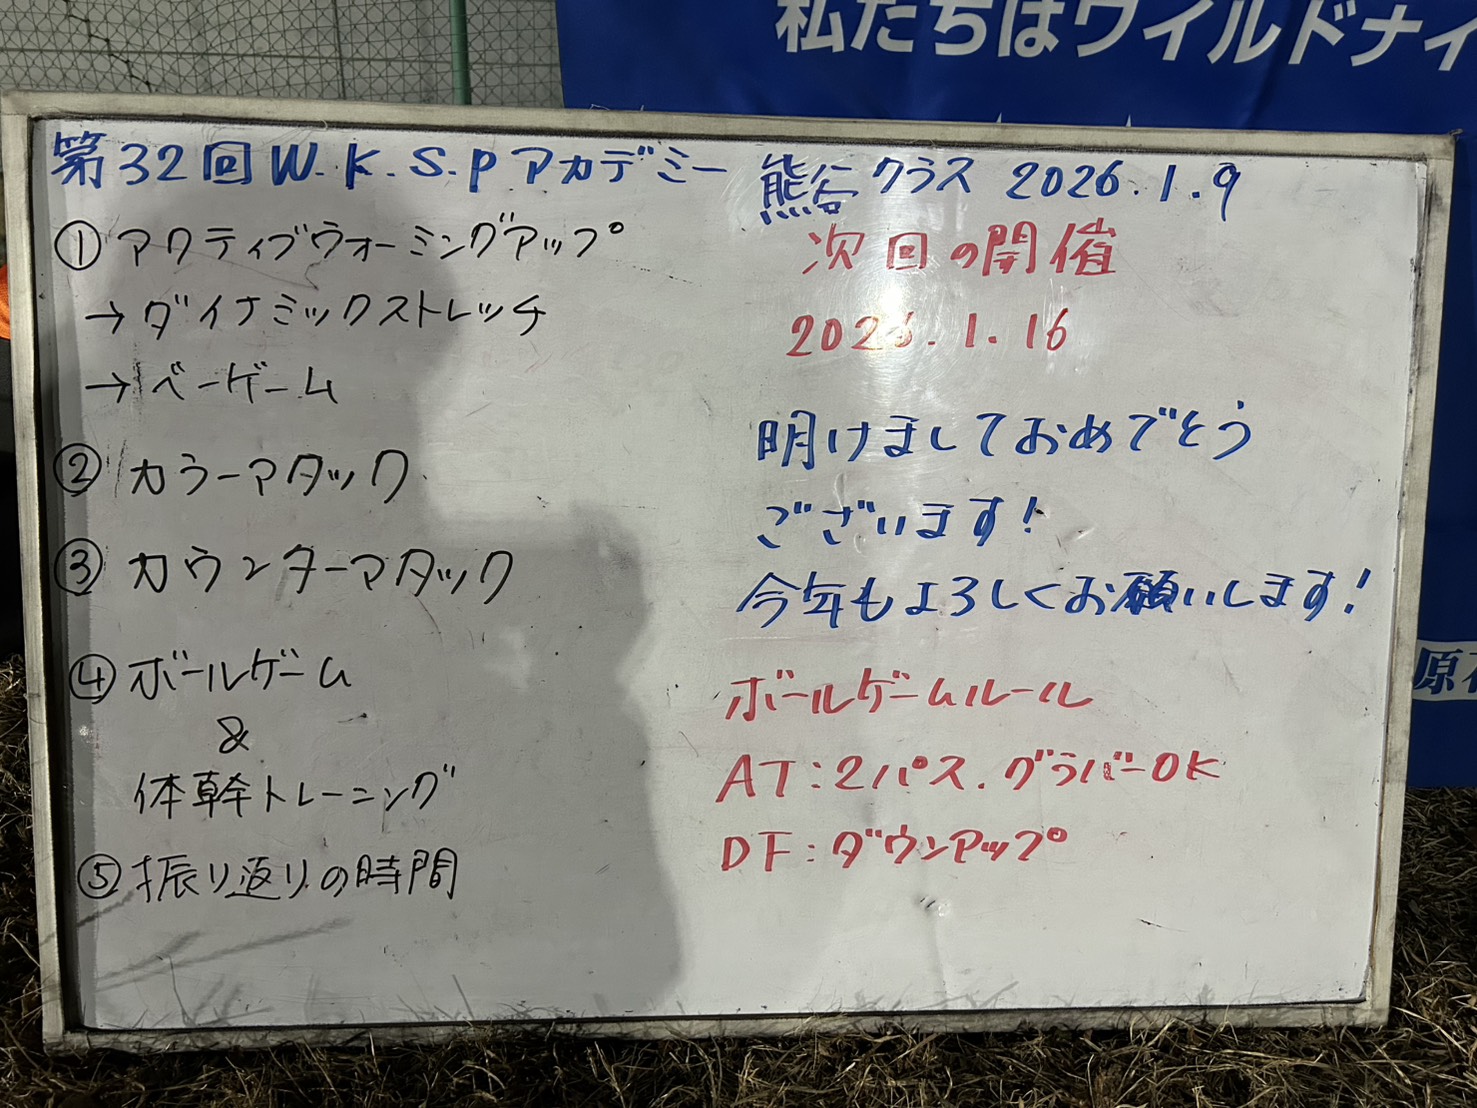 私たちはワイルドナイ
第32回 W.K.S.Pアカデミー 熊谷クラス 2026.1.9
①アクティブウォーミングアップ
→ダイナミックストレッチ
→ベーゲーム
②カラーアタック
③カウンターアタック
④ボールゲーム
&
体幹トレーニング
⑤振り返りの時間
次回の開催
2026.1.16
明けましておめでとう
ございます!
今年もよろしくお願いします!
ボールゲームルール
AT:2パス.グラバーOK
DF:ダウンアップ
原